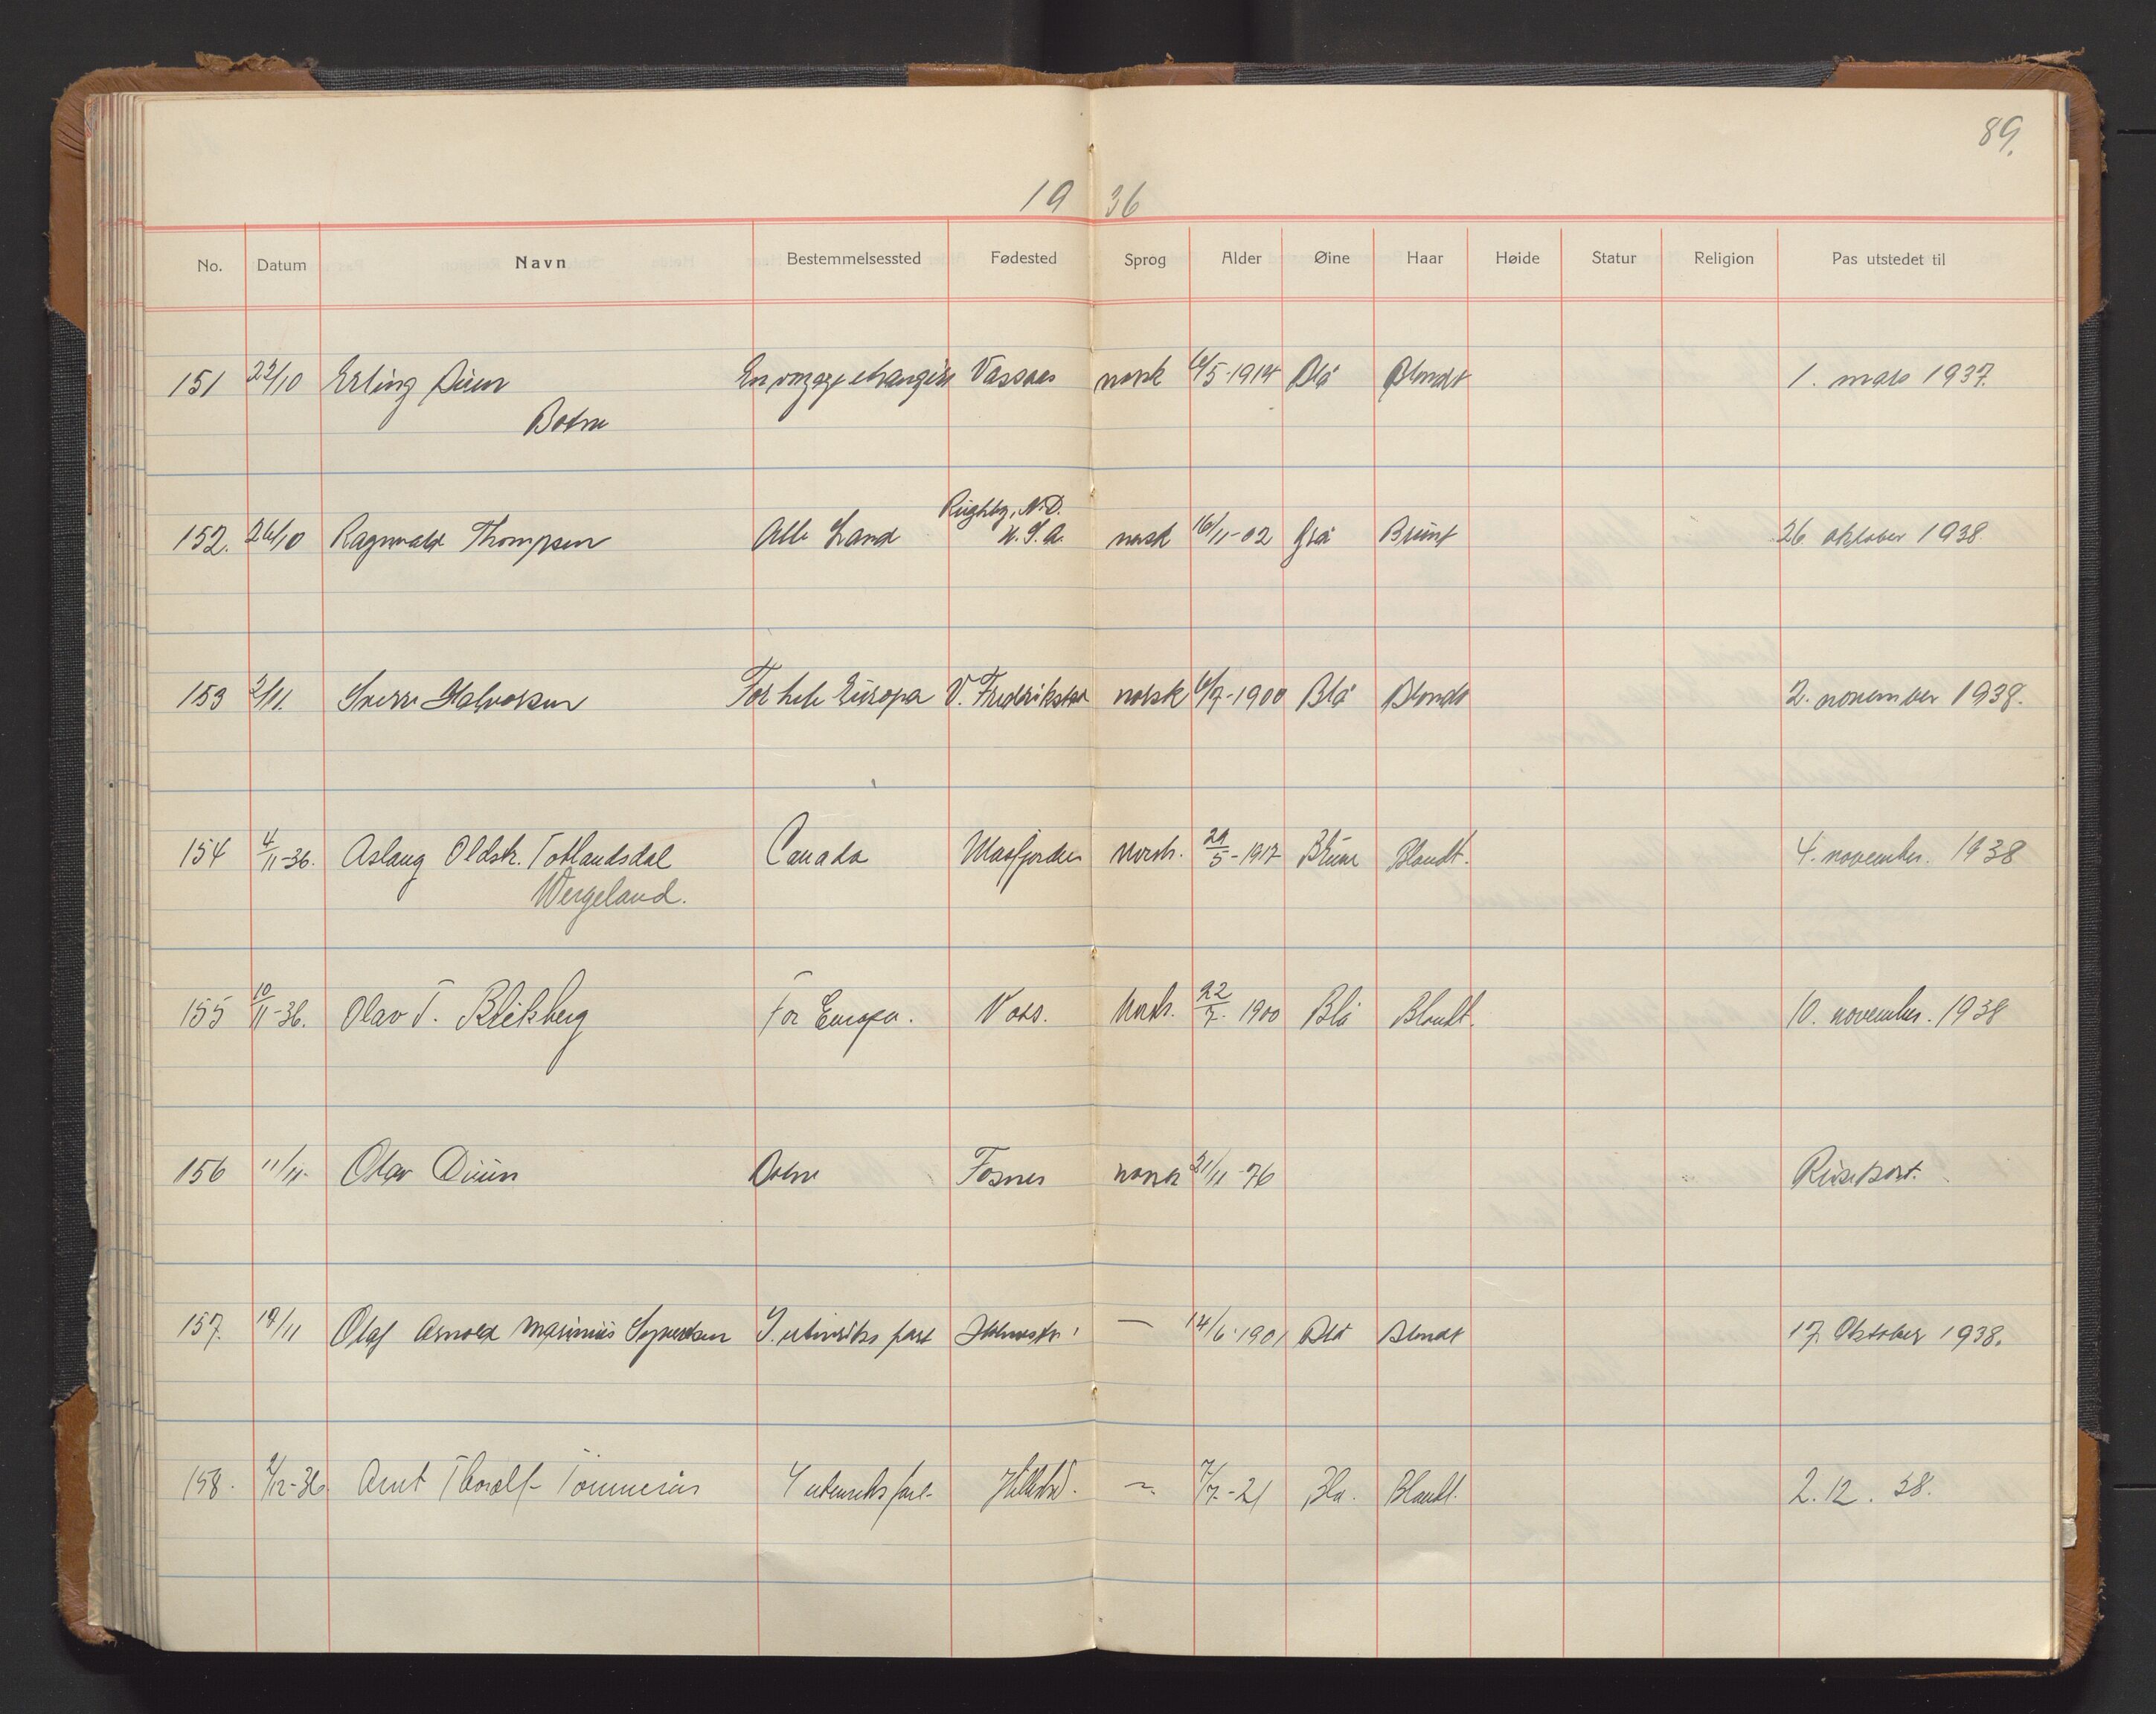 89.
19 36
No. Datum Navn Bestemmelsessted Fødested Sprog Alder Øine Haar Høide Statur Religion Pas utstedet til
151 23/10 Erling Duun Vassaas norsk 6/5-1914 Blå Blondt 1. mars 1937.
Botne
Rughby, N.D.
152. 26/10 Ragnvald Thompsen Alle Land U.S.A. norsk 16/11-02 Grå Brunt 26. oktober 1938.
153 2/11. Sverre Halvorsen For hele Europa V. Fredrikstad norsk 6/7-1900 Blå Blondt 2. november 1938.
154 4/11-36. Aslaug Oldstr. Totlandsdal Canada Masfjorden Norsk. 29/5-1917 Brune Blondt. 4. november. 1938
Wergeland.
155 10/11-36. Olav T. Blikberg For Europa. Voss. Norsk. 22/7-1900 Blå Blondt. 10. november. 1938
156 11/11. Olav Duun Botne Fosnes norsk 21/11-76 Reisekort.
157. 17/11 Olaf Arnold Marinius Syvertsen I utenriks fart — 14/6-1901 Blå Blondt 17. Oktober 1938.
158. 2/12-36 Arnt Thoralf I utenriks fart 7/7-21 Bla. Blondt. 2.12.38.